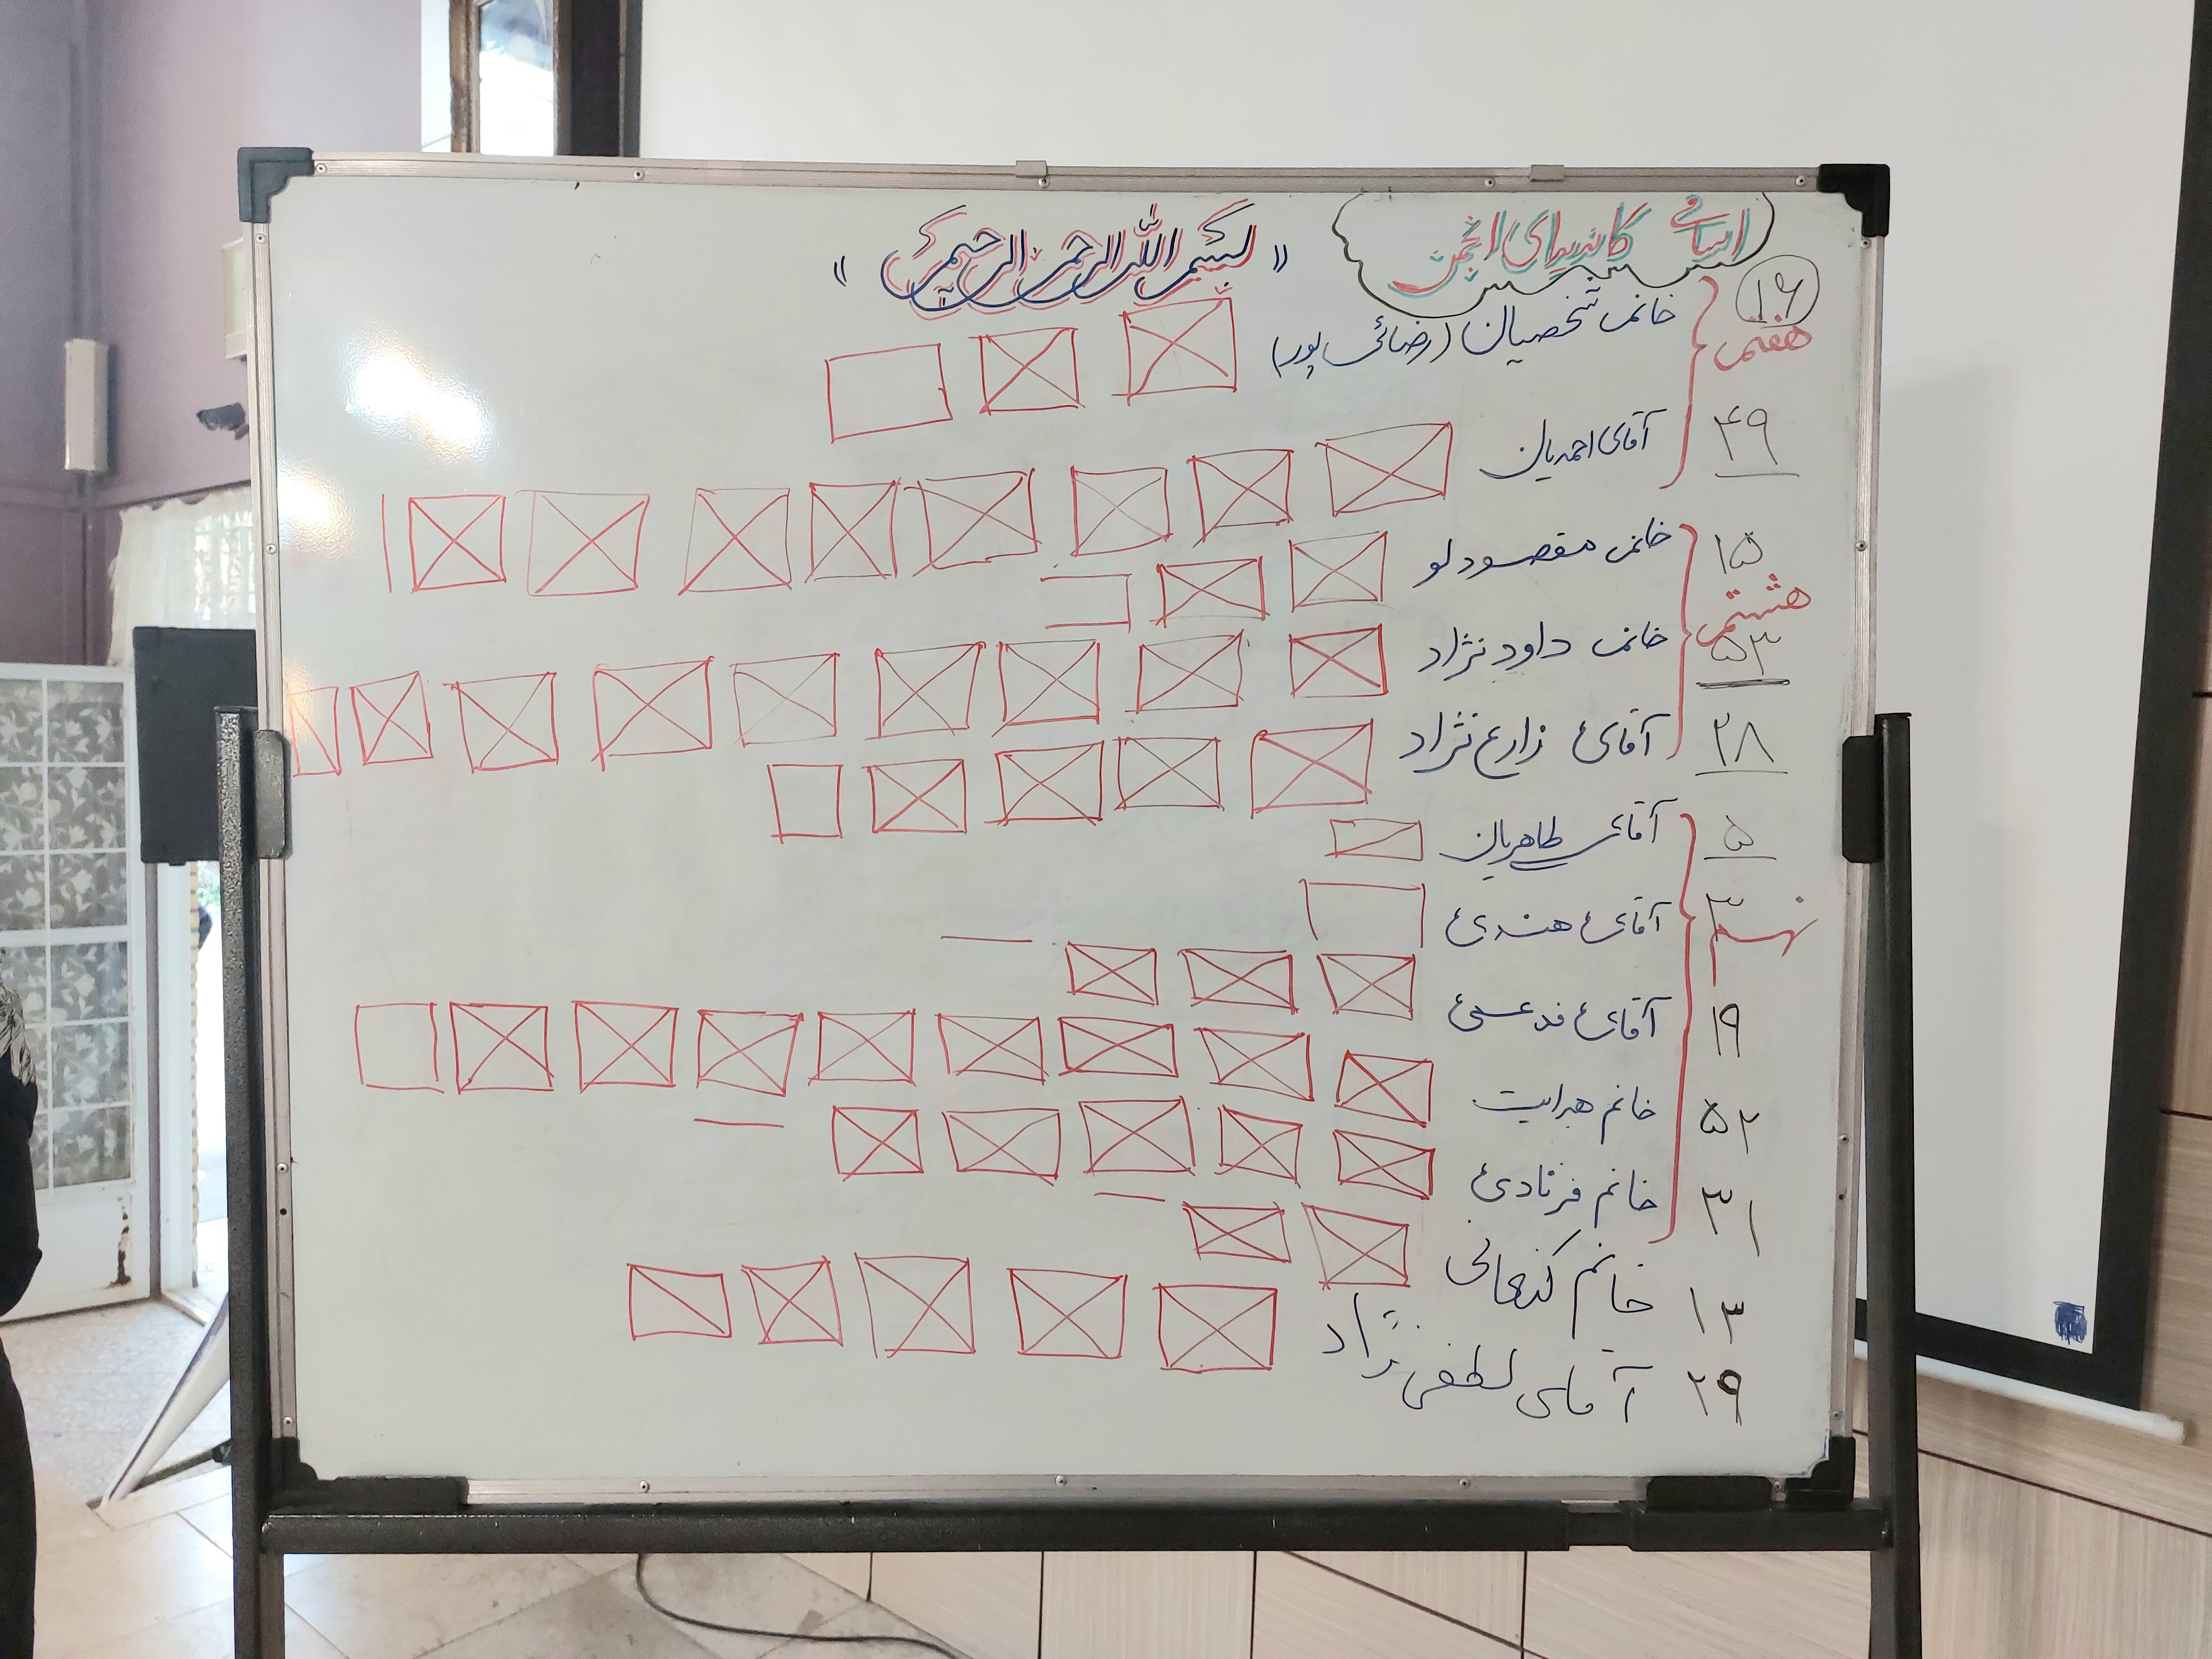 اسامی کاندیدای انجمن
« بسم الله الرحمن الرحیم »
۱۶ خانم شخصیان (رضائی پور)
هفتم
۴۹ آقای احمدیان
۱۵ خانم مقصودلو
هشتم
۵۳ خانم داود نژاد
۲۸ آقای زارع نژاد
۵ آقای طاهریان
۳ آقای هندی
نهم
۱۹ آقای
۵۲ خانم هدایت
۳۱ خانم
۱۳ خانم
۲۹ آقای لطفی نژاد